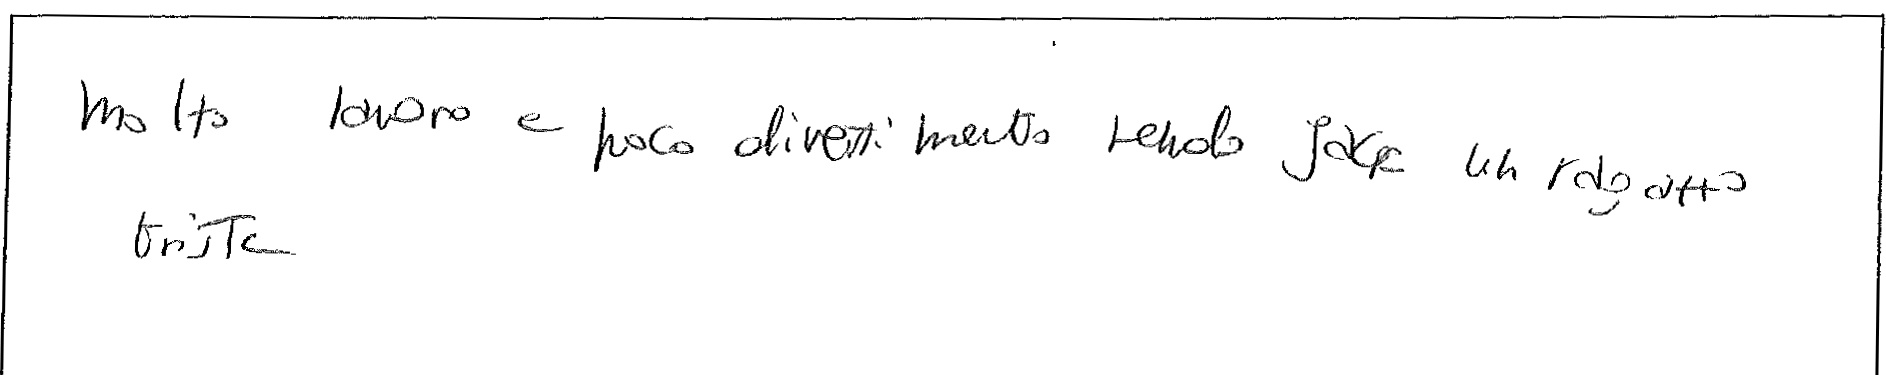 molto lavoro e poco divertimento rendo jack un ragatto
triste